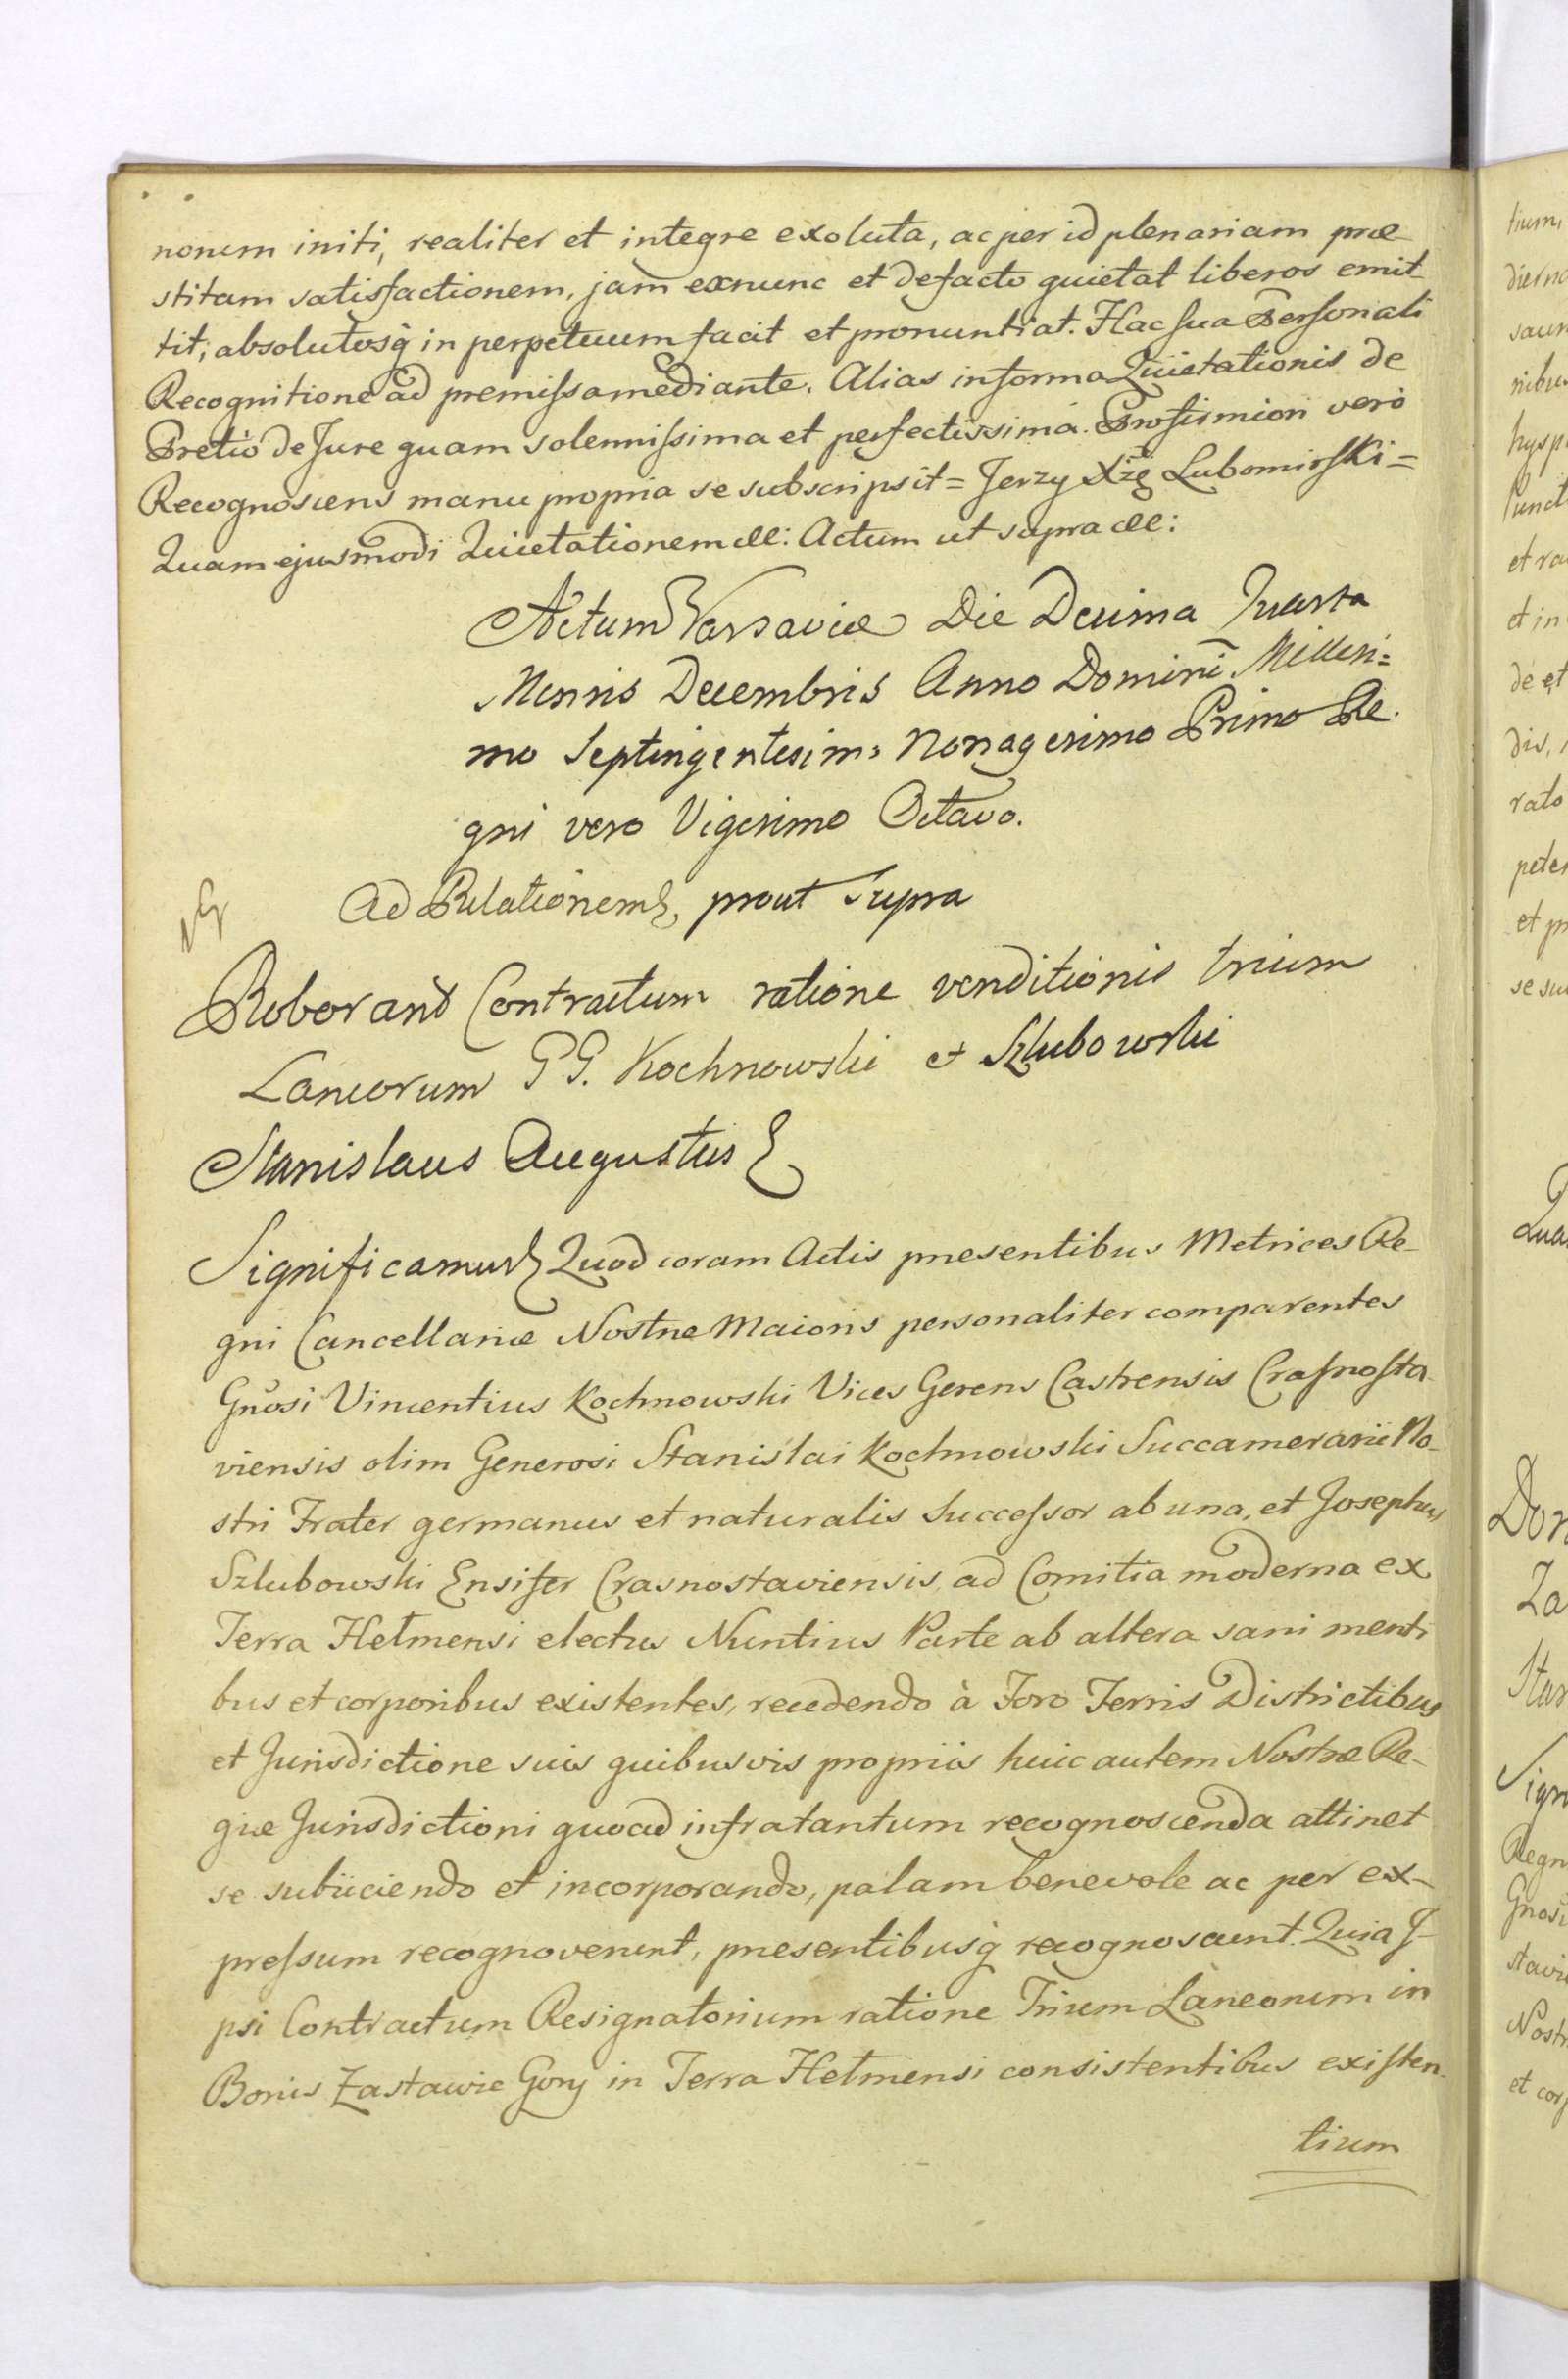 norum initi, realiter et integre exoluta, ac per id plenariam præ
stitam satisfactionem, jam exnunc et defacto quietat liberos emit
tit, absolutosq̃ in perpetuum facit et pronuntiat. Hac sua Personali
Recognitione ad premissa mediante. Alias in forma Quietationis de
Pretio de Jure quam solennissima et perfectissima. Profirmiori vero
Recognoscens manu propria se subscripsit = Jerzy Xżę Lubomirski =
Quam ejusmodi Quietationem &: Actum ut supra &:
Actum Varsaviæ Die Decima Quarta
Mensis Decembris Anno Domini Millesi=
mo Septingentesimo Nonagesimo Primo Re
gni vero Vigesimo Octavo.
Ad Relationem, prout Supra
Roborant Contractum ratione venditionis trium
Laneorum GG. Kochnowski et Szlubowski
Stanislaus Augustus
Significamus Quod coram Actis presentibus Metrices Re-
gni Cancellariæ Nostræ Maioris personaliter comparentes
Gnosi Vincentius Kochnowski Vices Gerens Castrensis Crasnosta-
viensis olim Generosi Stanislai Kochnowski Succamerarii No-
stri Frater germanus et naturalis Successor ab una, et Josephus
Szlubowski Ensifer Crasnostaviensis, ad Comitia moderna ex
Terra Helmensi electus Nuntius Parte ab altera sani menti
bus et corporibus existentes, recedendo à Foro Terris Districtibus
et Jurisdictione suis quibusvis propriis huic autem Nostræ Re-
giæ Jurisdictioni quoad infratantum recognoscenda attinet
se subiiciendo et incorporando, palam benevole ac per ex-
pressum recognoverunt, presentibusq̃ recognoscunt. Quia J-
psi Contractum Resignatorium ratione Trium Laneorum in
Bonis Zastawie Gory in Terra Helmensi consistentibus existen-
tium